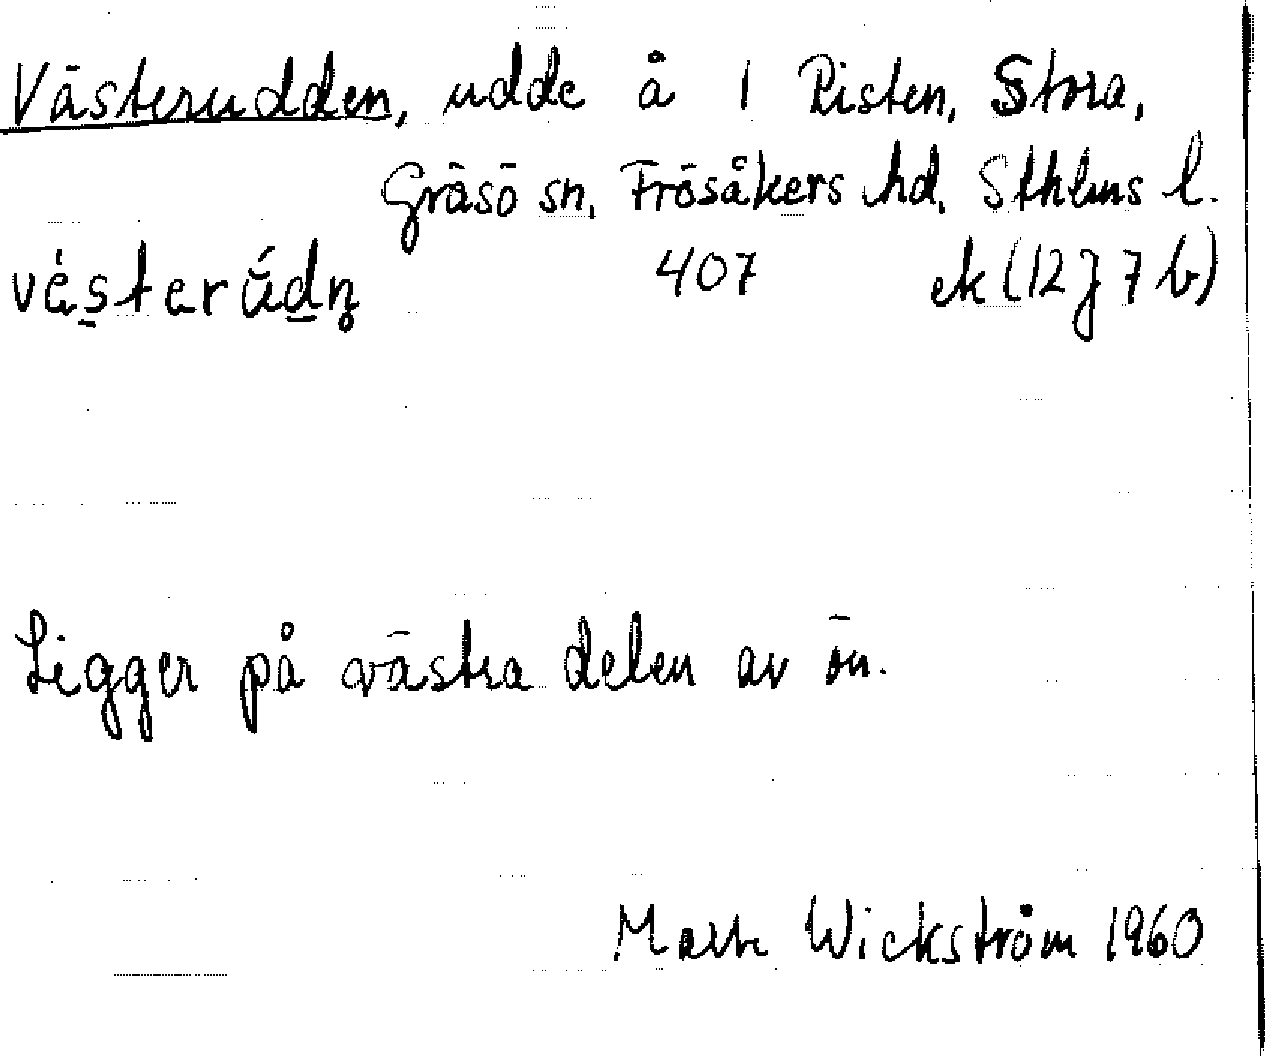 Västerudden, udde å 1 Risten, Stora,
Gräsö sn, Frösåkers hd, Sthlms l.
407 ek (12 J 7 b)
Ligger på västra delen av ön.
Wickström 1960